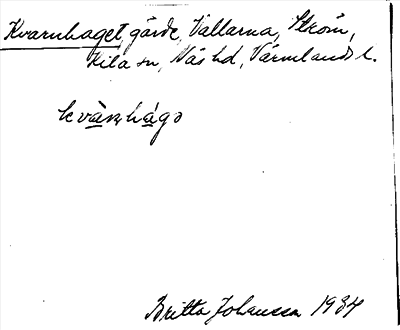 Kvarnhaget, gärde, Vallarna, Ström,
Kila sn, Näs hd, Värmlands l.
kvàn̥hágə
Britta Johansson 1934